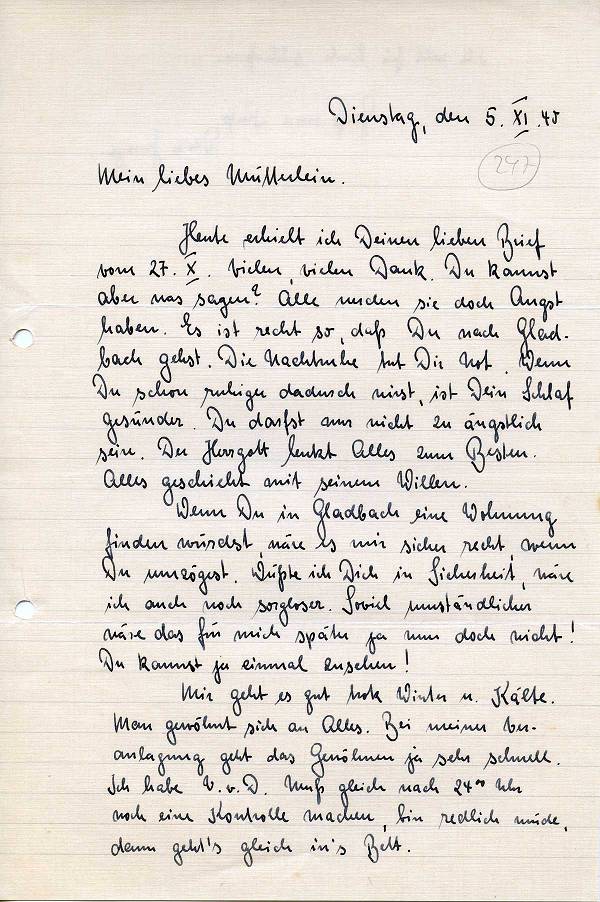 Dienstag, den 5. XI. 40
247
Mein liebes Mütterlein.
Heute erhielt ich Deinen lieben Brief
vom 27. X. vielen, vielen Dank. Du kannst
aber was sagen? Alle werden sie doch Angst
haben. Es ist recht so, daß Du nach Glad-
bach gehst. Die Nachtruhe tut Dir Not. Wenn
Du schon ruhiger dadurch wirst, ist Dein Schlaf
gesünder. Du darfst nur nicht zu ängstlich
sein. Der Herrgott lenkt Alles zum Besten.
Alles geschieht mit seinem Willen.
Wenn Du in Gladbach eine Wohnung
finden würdest, wäre es mir sicher recht, wenn
Du umzögest. Wüßte ich Dich in Sicherheit, wäre
ich auch noch sorgloser. Soviel umständlicher
wäre das für mich später ja nun doch nicht!
Du kannst ja einmal zusehen!
Mir geht es gut trotz Winter u. Kälte.
Man gewöhnt sich an Alles. Bei meiner Ver-
anlagung geht das Gewöhnen ja sehr schnell.
Ich habe U. v. D. Muß gleich nach 24⁰⁰ Uhr
noch eine Kontrolle machen, bin redlich müde,
dann geht's gleich in's Bett.